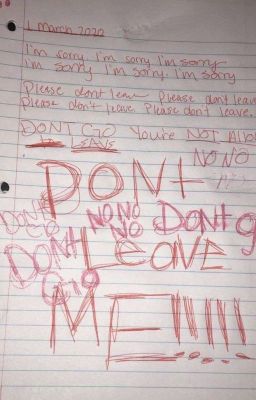 1 March 2020
I'm sorry. I'm sorry I'm sorry
I'm sorry I'm sorry. I'm sorry
Please dont leave Please dont leave
Please don't leave. Please don't leave.
DONT GO You're NOT Allo
LEAVE
NO NO
DONt
DONT GO NO NO NO DONt g
DONT LEAVE
GO
ME!!!!!